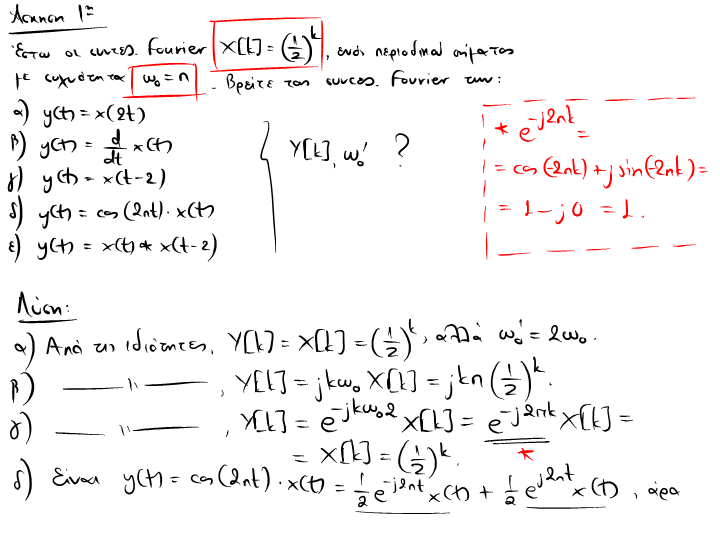 Άσκηση 1η
Έστω οι συντελ. Fourier X[k] = (1/2)^k, ενός περιοδικού σήματος
με συχνότητα ω₀ = π. Βρείτε τους συντελ. Fourier των:
α) y(t) = x(2t)
β) y(t) = d/dt x(t)
γ) y(t) = x(t-2)
δ) y(t) = cos(2πt) · x(t)
ε) y(t) = x(t) * x(t-2)
Y[k], ω₀' ?
* e^{-j2πk} =
= cos(-2πk) + j sin(-2πk) =
= 1 - j0 = 1.
Λύση:
α) Από τις ιδιότητες, Y[k] = X[k] = (1/2)^k, αλλά ω₀' = 2ω₀.
β) —— 〃 ——, Y[k] = jkω₀ X[k] = jkπ (1/2)^k.
γ) —— 〃 ——, Y[k] = e^{-jkω₀2} X[k] = e^{-j2πk} X[k] =
*
= X[k] = (1/2)^k.
δ) Είναι y(t) = cos(2πt) · x(t) = 1/2 e^{-j2πt} x(t) + 1/2 e^{j2πt} x(t), άρα